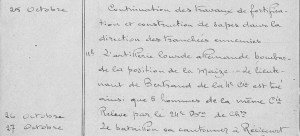 25 Octobre Continuation des travaux de fortifica-
tion et construction de sapes dans la
direction des tranchées ennemies
L'artillerie lourde allemande bombar-
de la position de la Maize - Le lieute-
nant de Bertrand de la 4e Cie est tué
ainsi que 8 hommes de la même Cie
26 Octobre Relève par le 24e de
27 Octobre Le bataillon va cantonner à